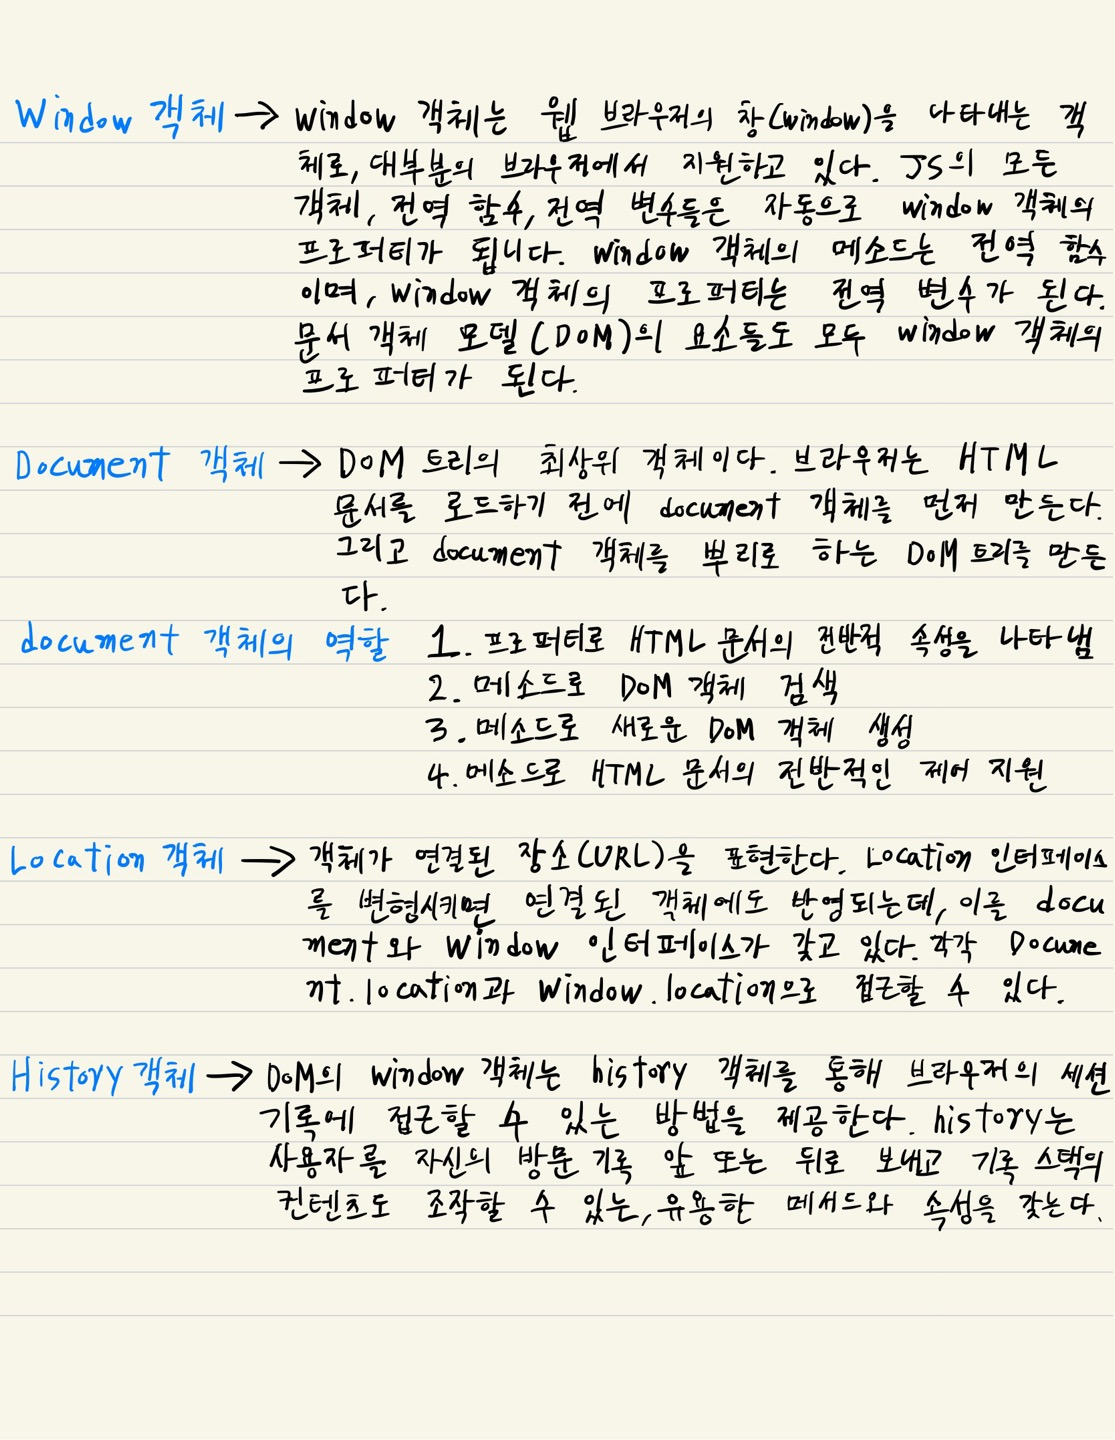 Window 객체 → window 객체는 웹 브라우저의 창(window)을 나타내는 객
체로, 대부분의 브라우저에서 지원하고 있다. JS의 모든
객체, 전역 함수, 전역 변수들은 자동으로 window 객체의
프로퍼티가 됩니다. window 객체의 메소드는 전역 함수
이며, window 객체의 프로퍼티는 전역 변수가 된다.
문서 객체 모델(DOM)의 요소들도 모두 window 객체의
프로퍼터가 된다.
Document 객체 → DOM 트리의 최상위 객체이다. 브라우저는 HTML
문서를 로드하기 전에 document 객체를 먼저 만든다.
그리고 document 객체를 뿌리로 하는 DOM 트리를 만든
다.
document 객체의 역할 1. 프로퍼티로 HTML 문서의 전반적 속성을 나타냄
2. 메소드로 DOM 객체 검색
3. 메소드로 새로운 DOM 객체 생성
4. 메소드로 HTML 문서의 전반적인 제어 지원
Location 객체 → 객체가 연결된 장소(URL)을 표현한다. Location 인터페이스
를 변형시키면 연결된 객체에도 반영되는데, 이를 docu
ment와 Window 인터페이스가 갖고 있다. 각각 Docume
nt.location과 Window.location으로 접근할 수 있다.
History 객체 → DOM의 window 객체는 history 객체를 통해 브라우저의 세션
기록에 접근할 수 있는 방법을 제공한다. history는
사용자를 자신의 방문 기록 앞 또는 뒤로 보내고 기록 스택의
컨텐츠도 조작할 수 있는, 유용한 메서드와 속성을 갖는다.